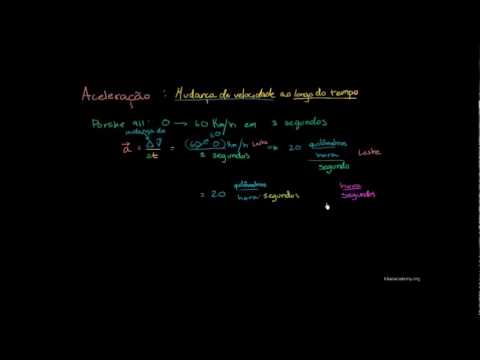 Aceleração : Mudança de velocidade ao longo do tempo
Porshe 911: 0 → 60 Km/h em 3 segundos
mudança de
60
a = ΔV / Δt = (60-0) Km/h Leste / 3 segundos => 20 quilômetros / hora / segundo Leste
= 20 quilômetros / hora · segundos hora / segundos
khanacademy.org